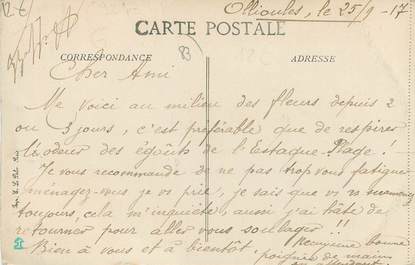 12 €
Ollioules, le 25/9 - 17
CARTE POSTALE
CORRESPONDANCE
83
ADRESSE
Cher Ami
Me voici au milieu des fleurs depuis 2
ou 3 jours, c'est préférable que de respirer
l'odeur des égoûts de l'Estaque-Plage !
Je vous recommande de ne pas trop vous fatiguer
ménagez-vous je vs prie, je sais que vs
toujours, cela m'inquiète, aussi j'ai hâte de
retourner pour aller vous soulager !!
Bien à vous et à bientôt.
bonne
poignée de main